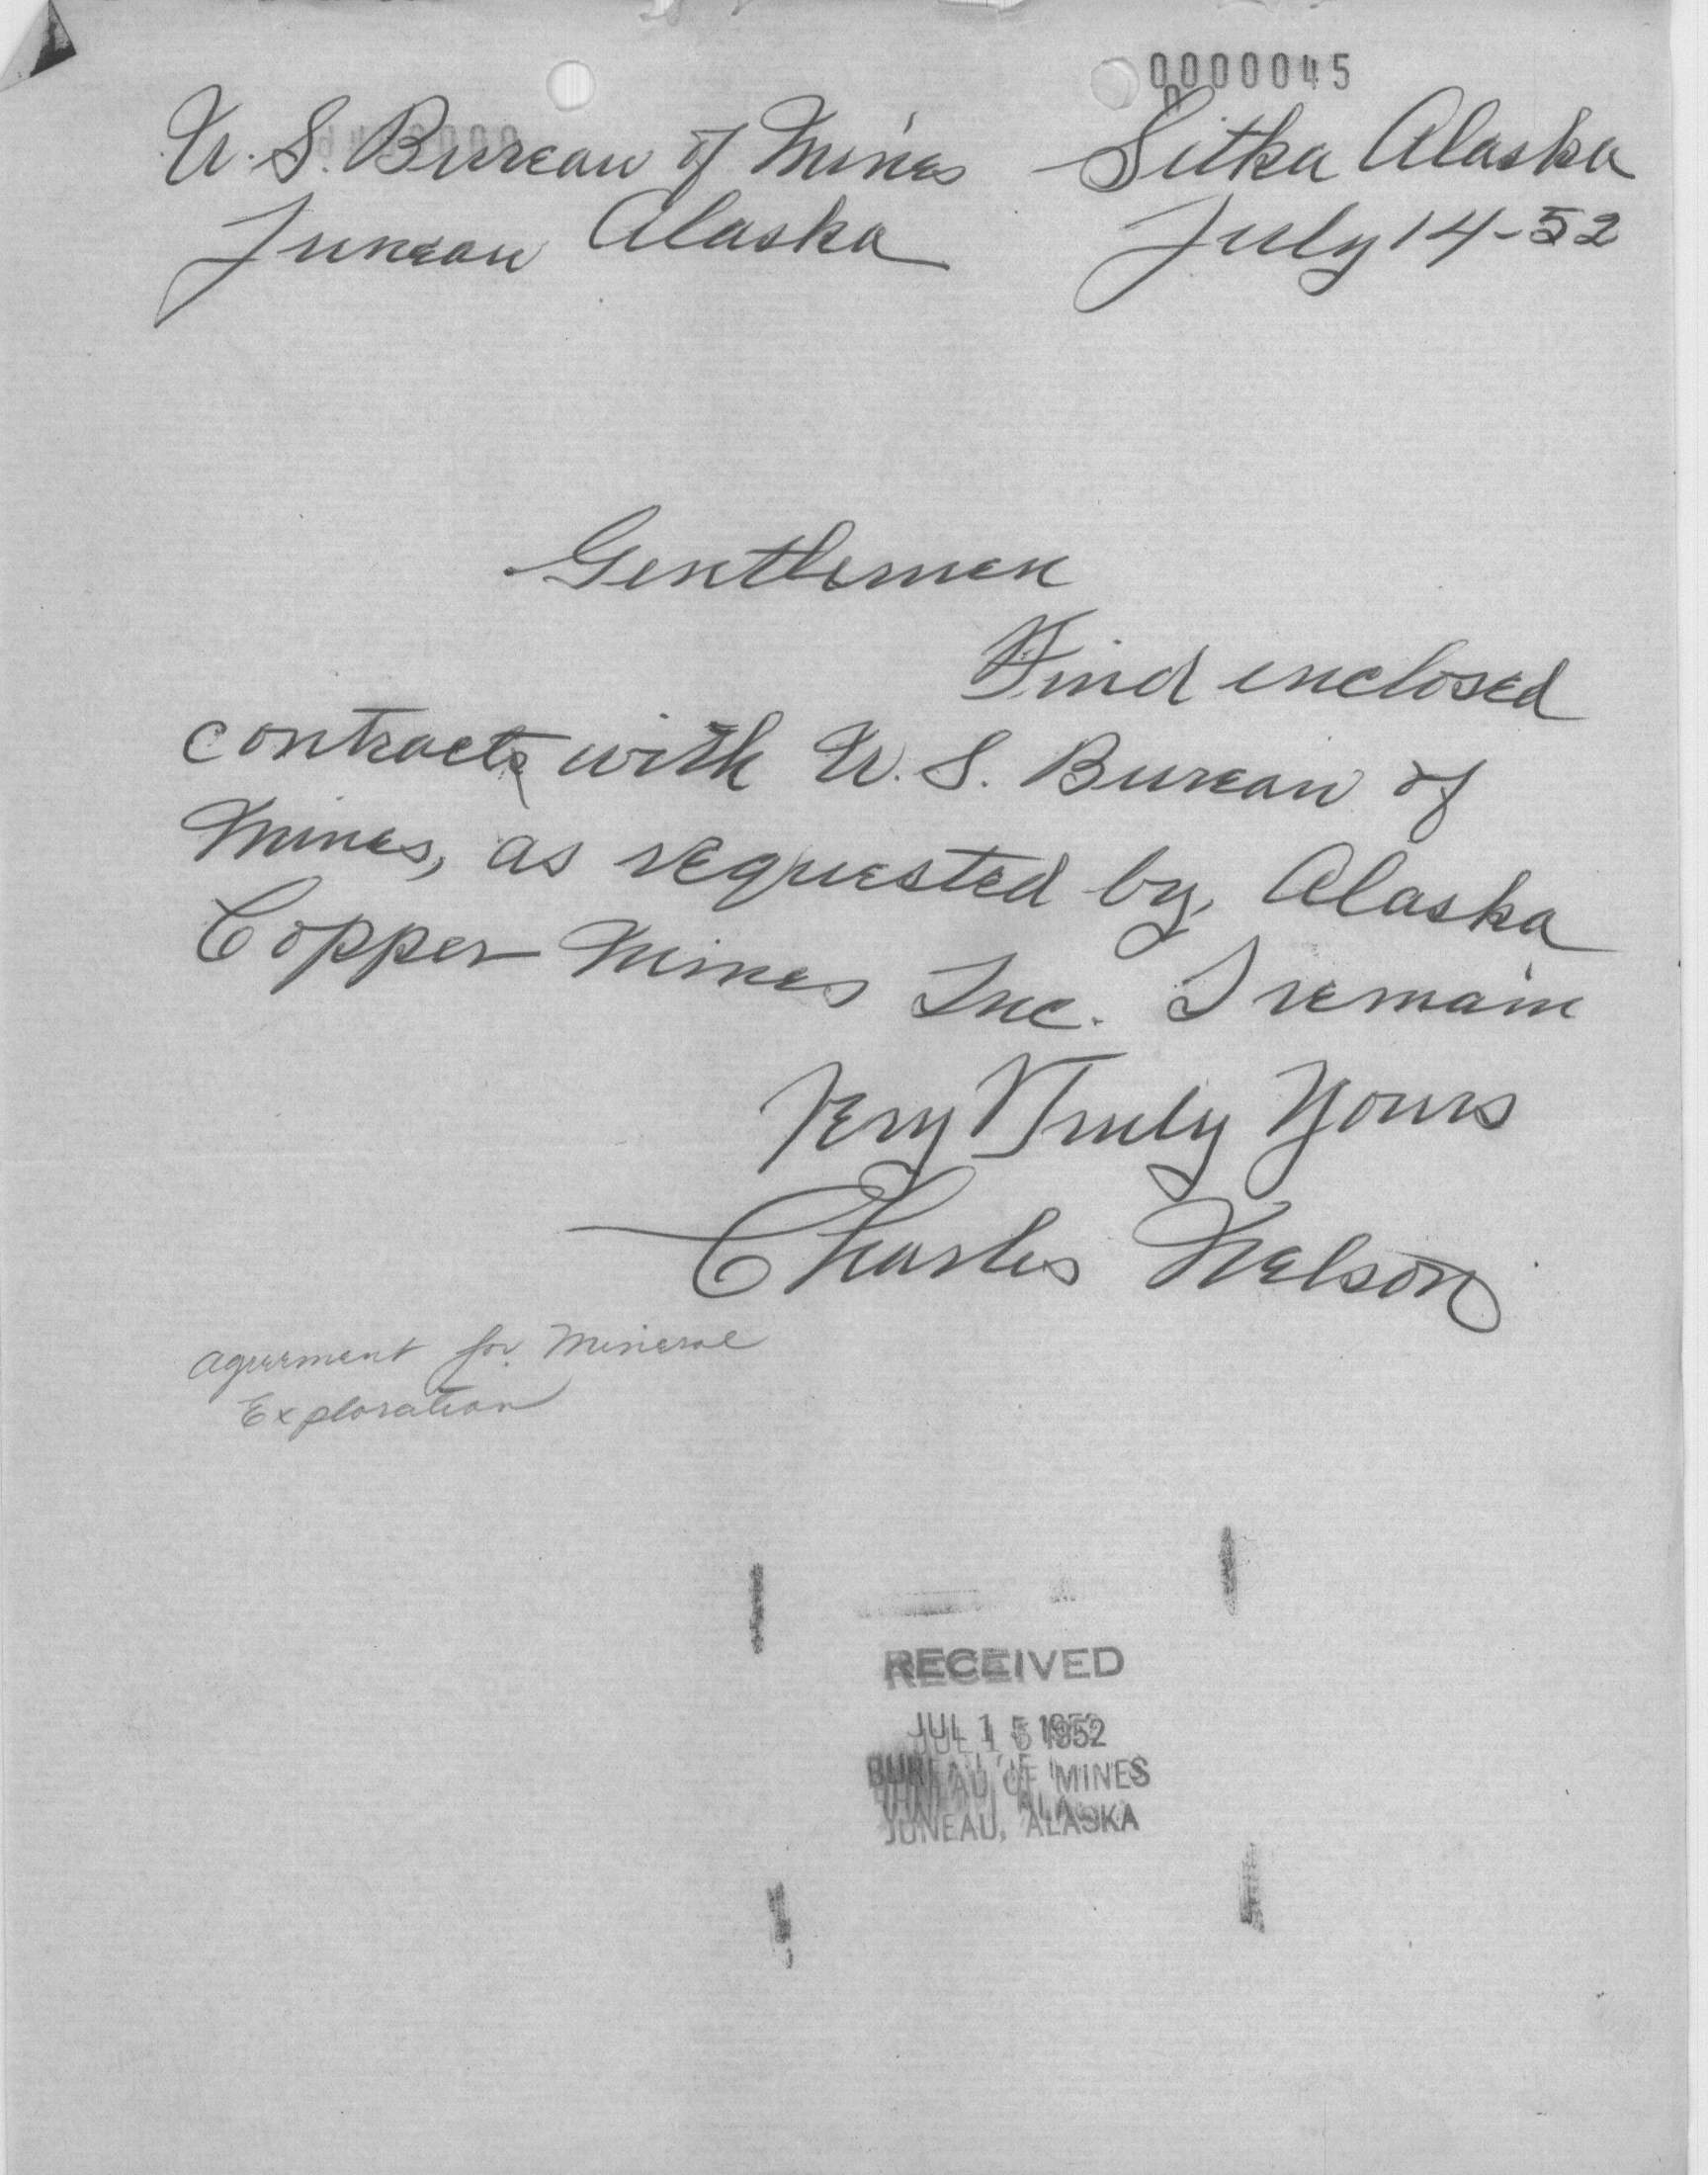 0000045
U. S. Bureau of Mines Sitka Alaska
Juneau Alaska July 14-52
Gentlemen
Find enclosed
contracts with U. S. Bureau of
Mines, as requested by, Alaska
Copper Mines Inc. I remain
Very Truly Yours
Charles Nelson
Agreement for Mineral
Exploration
RECEIVED
JUL 15 1952
BUREAU OF MINES
JUNEAU, ALASKA